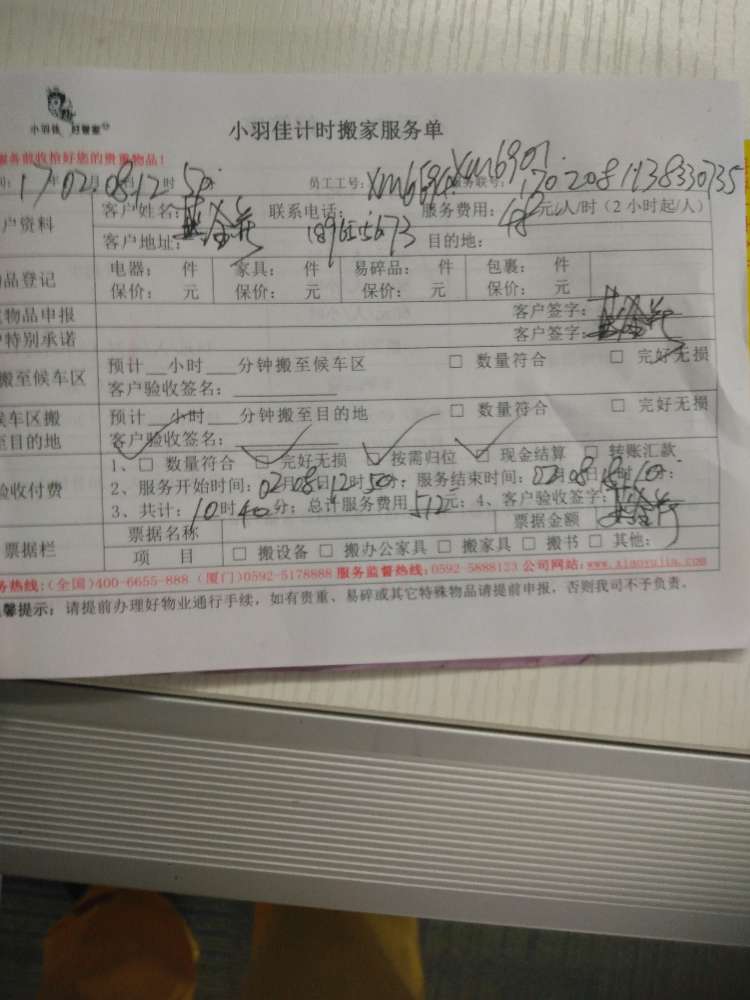 小羽佳 好管家
小羽佳计时搬家服务单
服务前收拾好您的贵重物品!
17年02月08日12时50分 员工工号:xm6594 xm6907 服务联号:1702081138330735
户资料 客户姓名: 联系电话: 服务费用:48元/人/时(2小时起/人)
客户地址: 目的地:
品登记 电器: 件 家具: 件 易碎品: 件 包裹: 件
保价: 元 保价: 元 保价: 元 保价: 元
物品申报 客户签字:
特别承诺 客户签字:
搬至候车区 预计__小时___分钟搬至候车区 □ 数量符合 □ 完好无损
客户验收签名:
候车区搬 预计__小时___分钟搬至目的地 □ 数量符合 □ 完好无损
至目的地 客户验收签名:
验收付费 1、□ 数量符合 □ 完好无损 □ 按需归位 □ 现金结算 □ 转账汇款
2、服务开始时间:02月08日12时50分;服务结束时间:02月08日18时10分;
3、共计:10时40分;总计服务费用512元;4、客户验收签字:
票据栏 票据名称 票据金额
项 目 □ 搬设备 □ 搬办公家具 □ 搬家具 □ 搬书 □ 其他:
务热线:(全国)400-6655-888 (厦门)0592-5178888 服务监督热线:0592-5888123 公司网站:www.xiaoyujia.com
馨提示:请提前办理好物业通行手续,如有贵重、易碎或其它特殊物品请提前申报,否则我司不予负责。